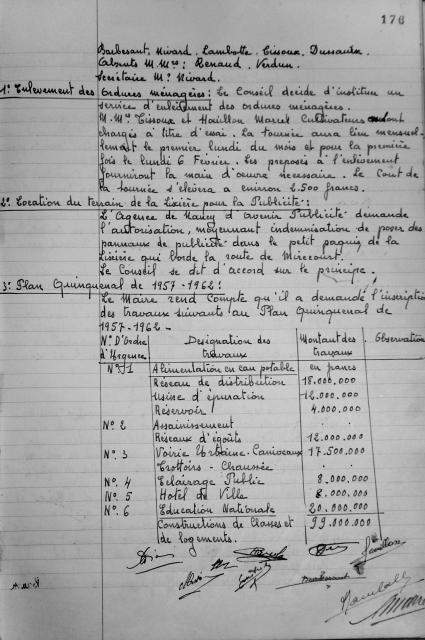 176
Barbesant. Mirard. Lambotte. Tissoux. Dussaulx.
Absents M.Mrs: Renaud, Verdun.
Secrétaire Mr Nivard.
1º. Enlèvement des Ordures ménagères: Le Conseil décide d'instituer un
service d'enlèvement des ordures ménagères.
M.Mrs Tissoux et Houillon Marcel Cultivateurs sont
chargés à titre d'essai. La tournée aura lieu mensuel-
lement le premier lundi du mois et pour la première
fois le lundi 6 Février. Les préposés à l'enlèvement
fourniront la main d'œuvre nécessaire. Le Coût de
la tournée s'élèvera à environ 2.500 francs.
2º. Location du terrain de la Lisière pour la Publicité:
L'Agence de Nancy d'Avenir Publicité demande
l'autorisation, moyennant indemnisation de poser des
panneaux de publicité dans le petit paquis de la
Lisière qui borde la route de Mirecourt.
Le Conseil se dit d'accord sur le principe.
3º. Plan Quinquenal de 1957-1962:
Le Maire rend Compte qu'il a demandé l'inscription
des travaux suivants au Plan Quinquenal de
1957-1962-
Nº. D'Ordre Designation des Montant des Observation
d'Urgence travaux travaux
Nº. 1 Alimentation en eau potable en francs
Réseau de distribution 18.000.000
Usine d'épuration 12.000.000
Réservoir 4.000.000
Nº. 2 Assainissement
Réseaux d'égoûts 12.000.000
Nº. 3 Voirie Urbaine. Caniveaux 17.500.000
Trottoirs - Chaussée
Nº. 4 Eclairage Public 8.000.000
Nº. 5 Hotel de Ville 8.000.000
Nº. 6 Education Nationale 20.000.000
Constructions de Classes et 99.000.000
de logements.
Barbesant
Lambotte